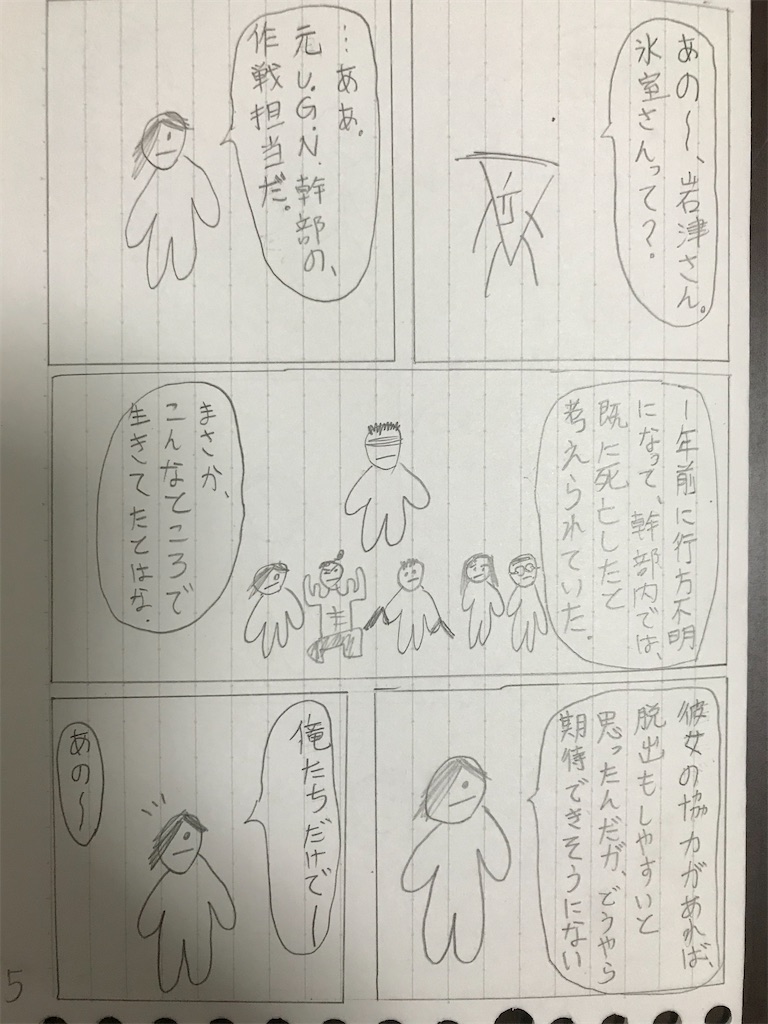 あの～、岩津さん。
氷室さんって？。
…ああ。
元U.G.N.幹部の、
作戦担当だ。
1年前に行方不明
になって、幹部内では、
既に死亡したと
考えられていた。
まさか、
こんなところで
生きてたとはな.
彼女の協力があれば、
脱出もしやすいと
思ったんだが、どうやら
期待できそうにない
俺たちだけでー
あの～
5